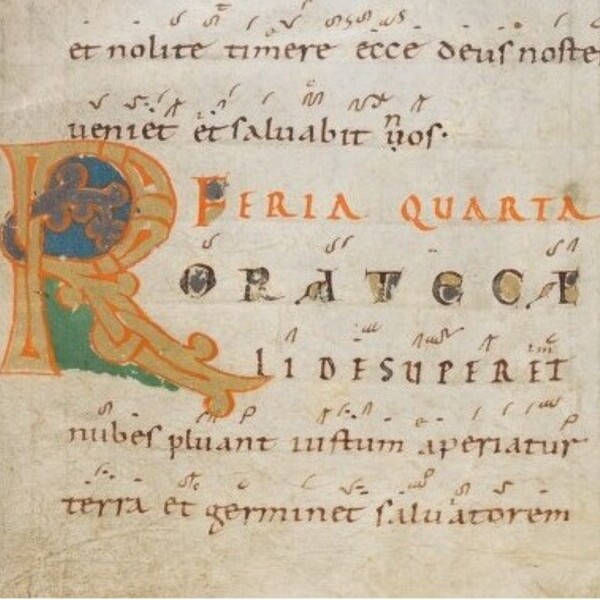 et nolite timere ecce deus noste
ueniet et saluabit uos·
FERIA QUARTA
RORATE CE
LI DESUPER ET
nubes pluant iustum aperiatur
terra et germinet saluatorem